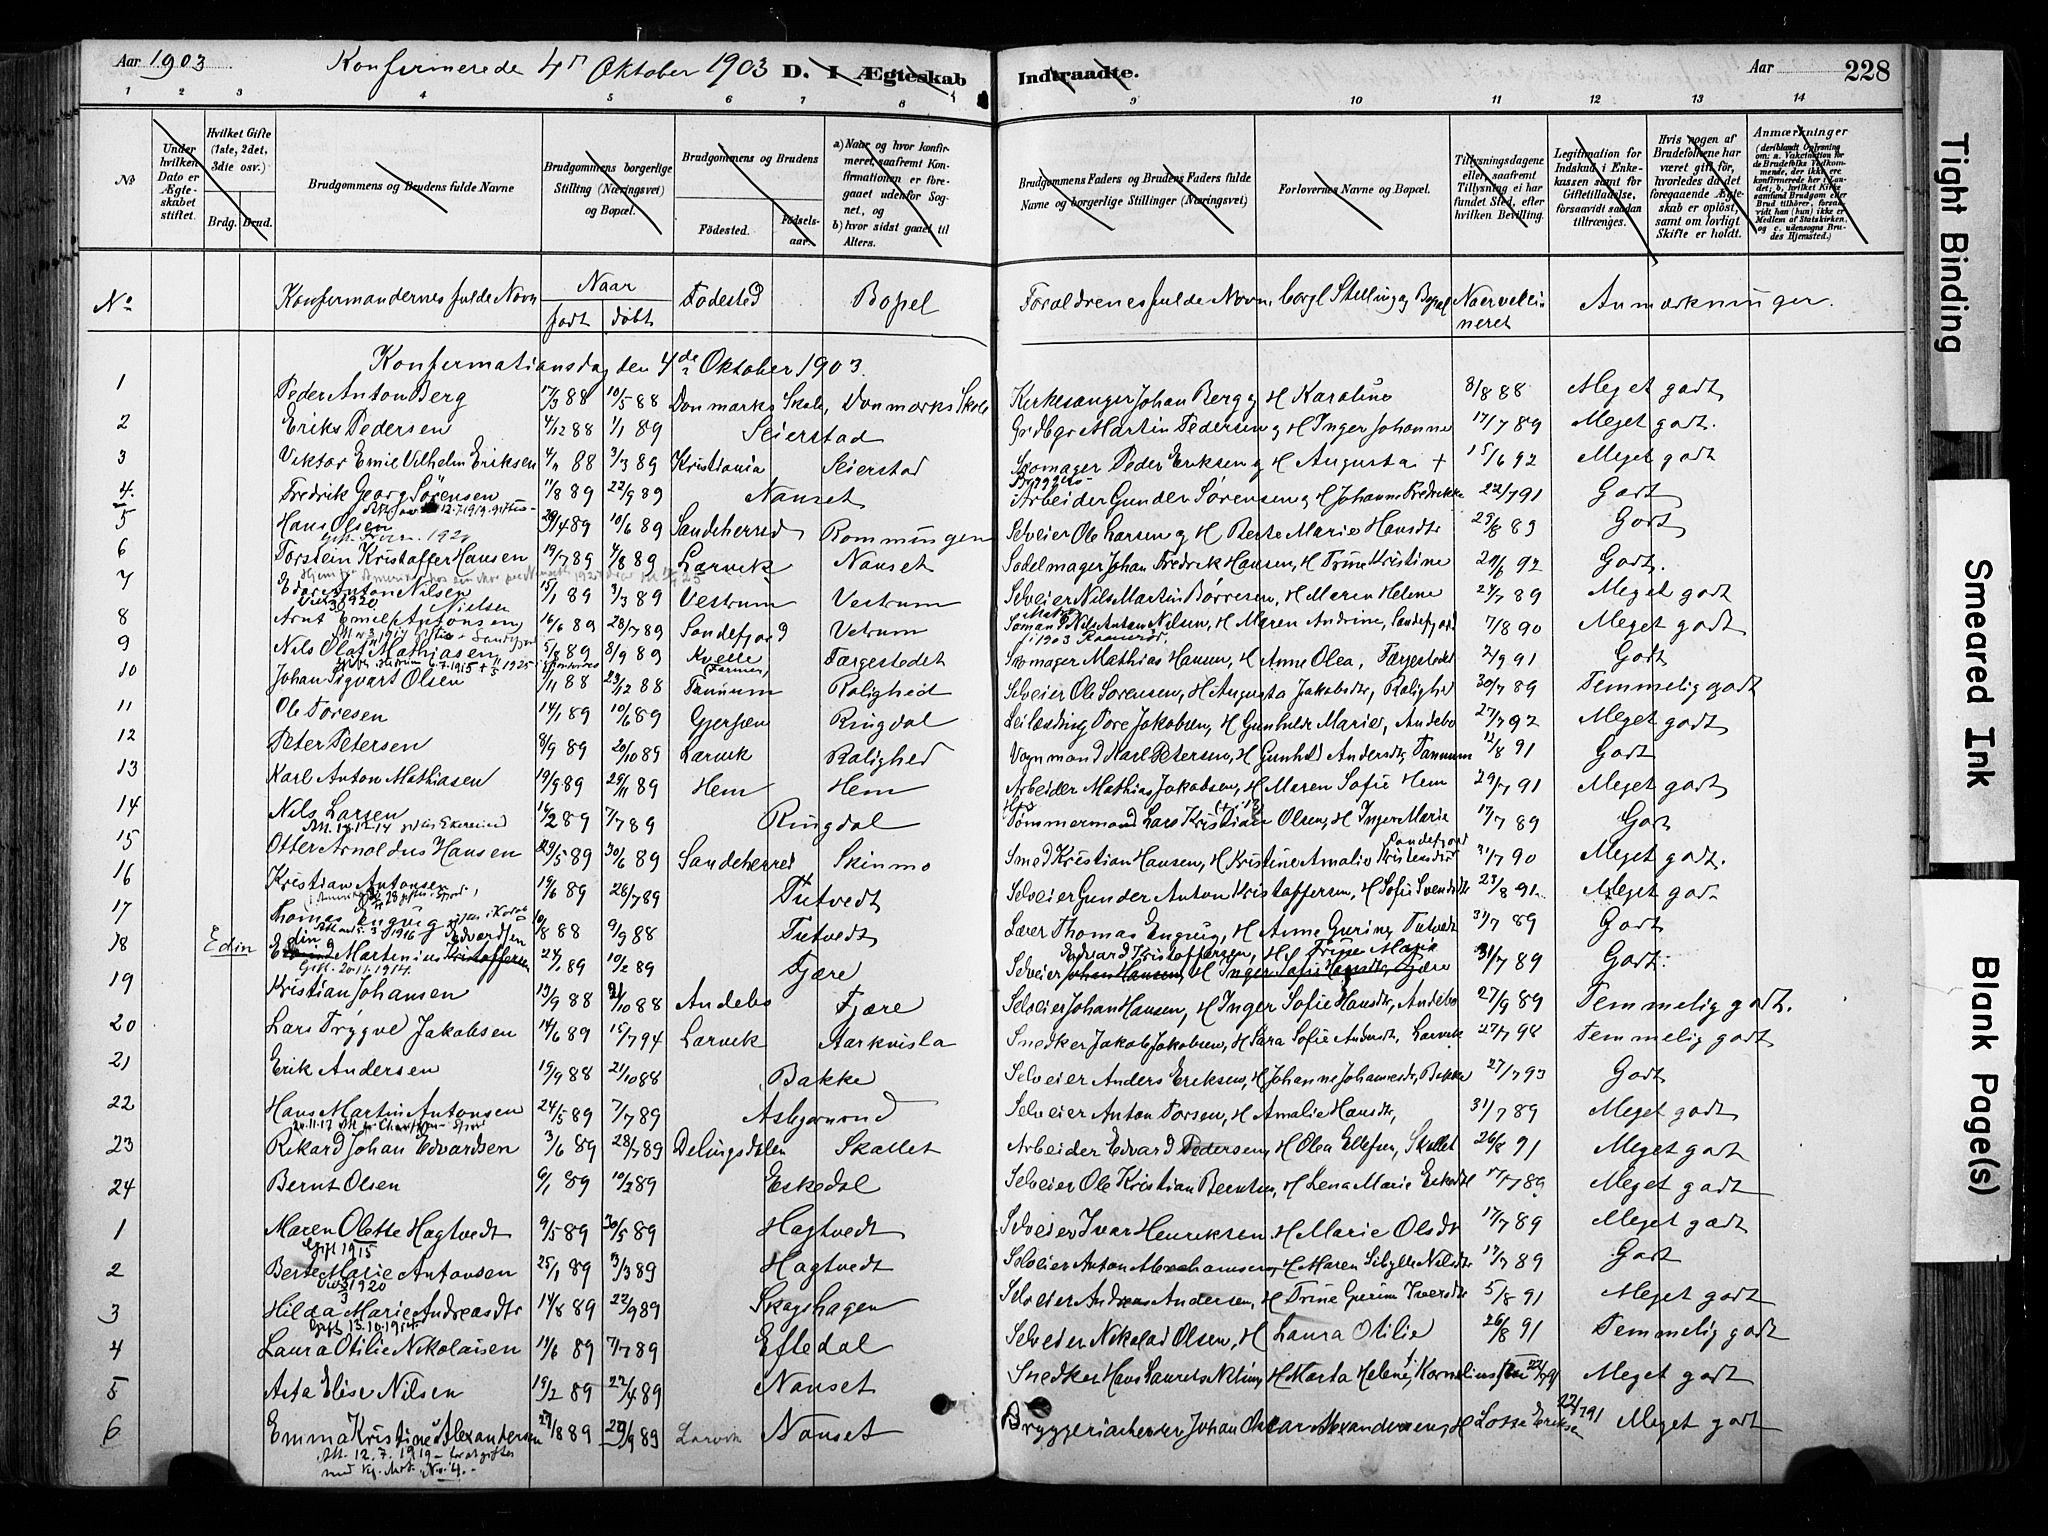 Aar 1903 Konfirmerede 4de Oktober 1903 D. I Ægteskab Indtraadte. Aar 228
1 2 3 4 5 6 7 8 9 10 11 12 13 14
No. Under hvilken Dato er Ægteskabet stiftet. Hvilket Gifte (1ste, 2det, 3die osv.) Brdg. Brud. Brudgommens og Brudens fulde Navne Brudgommens borgerlige Stilling (Næringsvei) og Bopæl. Brudgommens og Brudens Födested. Födselsaar.
a) Naar og hvor konfirmeret, saafremt Konfirmationen er foregaaet udenfor Sognet, og b) hvor sidst gaaet til Alters.
Brudgommens Faders og Brudens Faders fulde Navne og borgerlige Stillinger (Næringsvei)
Forlovernes Navne og Bopæl.
Tillysningsdagene eller, saafremt Tillysning ei har fundet Sted, efter hvilken Bevilling.
Legitimation for Indskud i Enkekassen samt for Giftetilladelse, forsaavidt saadan tiltrænges.
Hvis nogen af Brudefolkene har været gift før, hvorledes da det foregaaende Ægteskab er oplöst, samt om lovligt Skifte er holdt.
Anmærkninger (deriblandt Oplysning om: a. Vakcination for de Brudefolks Vedkommende, der ikke ere konfirmerede her i Landet; b. hvilket Kirkesamfund Brudgom eller Brud tilhörer, forsaavidt han (hun) ikke er Medlem af Statskirken, og c. udensogns Brudes Hjemsted.)
No Konfirmandernes fulde Navn Naar født døbt Fødested Bopel Forældrenes fulde Navn, borgl Stilling og Bopæl Naar vaksineret Anmærkninger.
Konfirmationsdag den 4de Oktober 1903.
1 Peder Anton Berg 17/3 88 10/5 88 Danmarks Skole, Danmarks Skole Kirkesanger Johan Berg og H Karoline 8/8 88 Meget godt
2 Eriks Pedersen 4/12 88 1/1 89 Seierstad Grdbgr Martin Pedersen og H Inger Johanne 17/7 89 Meget godt.
3 Viktor Emil Vilhelm Eriksen 88 3/3 89 Kristiania Seierstad Skomager Peder Eriksen og H Augusta + 15/6 92 Meget godt
4. Fredrik Georg Sörensen 11/8 89 22/9 89 Nanset Bryggeri- Arbeider Gunder Sørensen og H Johanne Fredrikke 22/7 91 Godt
5 Hans Olsen 4 89 10/6 89 Sandeherred Rommungen Selveier Ole Larsen og H Berte Marie Hansdtr 29/8 89 Godt
6 Torstein Kristoffer Hansen 19/7 89 4/8 89 Larvik Nanset Sadelmager Johan Fredrik Hansen, H Trine Kristine 92 Godt.
7 Anton Nilsen 89 3/3 89 Vestrum Vestrum Selveier Nils Martin Börresen, H Maren Helene 89 Meget godt
1920 Nielsen
8 Arnt Emil Antonsen 16/6 89 28/7 89 Sandefjord Vetrum Sømand Nils Anton Nilsen, H Maren Andrine, Sandefjord 7/8 90 Meget godt
9 Nils Olaf Mathiasen 5/8 89 8/9 89 Kvelle Færgestedet Skomager Mathias Hansen, H Anne Olea, Færgestedet 2/9 91 Godt
10 Johan Sigvart Olsen 88 23/12 88 Tanum Rolighed Selveier Ole Sorensen, H Augusta Jakobsdtr, Rolighed 30/7 89 Temmelig godt
11 Ole Toresen 14/1 89 10/6 89 Gjerpen Ringdal Leilænding Tore Jakobsen, H Gunhilde Marie, Andebo 27/7 92 Meget godt
12 Peter Petersen 8/9 89 20/10 89 Larvik Rolighed Vognmand Karl Petersen, H Gunhild Andersdtr, Tanum 12/8 91 Godt
13 Karl Anton Mathiasen 19/9 89 29/11 89 Hem Hem Arbeider Mathias Jakobsen, H Maren Sofie Hem 29/7 91 Meget godt
14 Nils Larsen 16/2 89 7/7 89 Ringdal Tømmermand Lars Kristian Olsen, H Inger Marie 17/7 89 Godt
15 Otter Arnoldus Hansen 29/5 89 30/6 89 Sandeherred Skinmo Smed Kristian Hansen, H Kristine Amalie Kristensdtr Sandefjord 31/7 90 Meget godt.
16 Kristian Antonsen 19/6 89 28/7 89 Tutvedt Selveier Gunder Anton Kristoffersen, H Sofie Svendsdtr 23/8 91 Meget godt
17 Thomas Engrug 10/8 88 9/9 88 Tutvedt Lærer Thomas Engrug, H Anne Gurine, Tutvedt 31/7 89 Godt
18 Edin Edin Martinius Kristoffersen Edvardsen 89 10/2 89 Fjære Edvard Kristoffersen, H Trine Marie Selveier Johan Hansen, H Inger Sofie Hansdtr, Fjære 31/7 89 Godt.
Gift. 20.11.1914.
19 Kristian Johansen 13/9 88 21/10 88 Andebo Fjære Selveier Johan Hansen, H Inger Sofie Hansdtr, Andebo 27/9 89 Temmelig godt.
20 Lars Trygve Jakobsen 14/6 89 15/7 94 Larvik Aarkvisla Snedker Jakob Jakobsen, H Sara Sofie Andersdtr, Larvik 27/7 98 Temmelig godt
21 Erik Andersen 19/9 88 21/10 88 Bakke Selveier Anders Eriksen, H Johanne Johannesdtr, Bakke 27/7 93 Godt
22 Hans Martin Antonsen 24/5 89 7/7 89 Asbjørnrød Selveier Anton Torsen, H Amalie Hansdtr, 31/7 89 Meget godt
23 Rikard Johan Edvardsen 3/6 89 28/7 89 Delingsdalen Skallet Arbeider Edvard Pedersen, H Olea Ellefsen, Skallet 26/8 91 Meget godt
24 Bernt Olsen 6/1 89 10/2 89 Eskedal Selveier Ole Kristian Berntsen, H Lena Marie 17/7 89 Meget godt
1 Maren Olette Hagtvedt 9/5 89 30/5 89 Hagtvedt Selveier Ivar Henriksen H Marie Olsdtr 17/7 89 Meget godt
Gift 1915
2 Berte Marie Antonsen 25/1 89 3/3 89 Hagtvedt Selveier Anton Abrahamsen, H Maren Sibylle Nilsdtr 17/7 89 Godt
1920
3 Hilda Marie Andreasdtr 14/8 89 22/9 89 Skogshagen Selveier Andreas Andersen, H Trine Gurine Iversdtr 5/8 91 Meget godt
Gift 15.10.1914
4 Laura Otilie Nikolaisen 14/6 89 7/7 89 Eftedal Selveier Nikolai Olsen, H Laura Otilie 26/8 91 Temmelig godt
5 Asta Elise Nilsen 19/2 89 22/4 89 Nanset Snedker Hans Laurits Nilsen, H Marta Helene, Kornelius 22/7 91 Meget godt
6 Emma Kristine Alexandersen 27/8 89 29/9 89 Larvik Nanset Bryggeriarbeider Johan Oskar Alexandersen, H Lovise Eriksen 22/7 91 Meget godt
Att. 12.7.1919 - for at giftes
med kf. No. 4.-
Tight Binding
Smeared Ink
Blank Page(s)